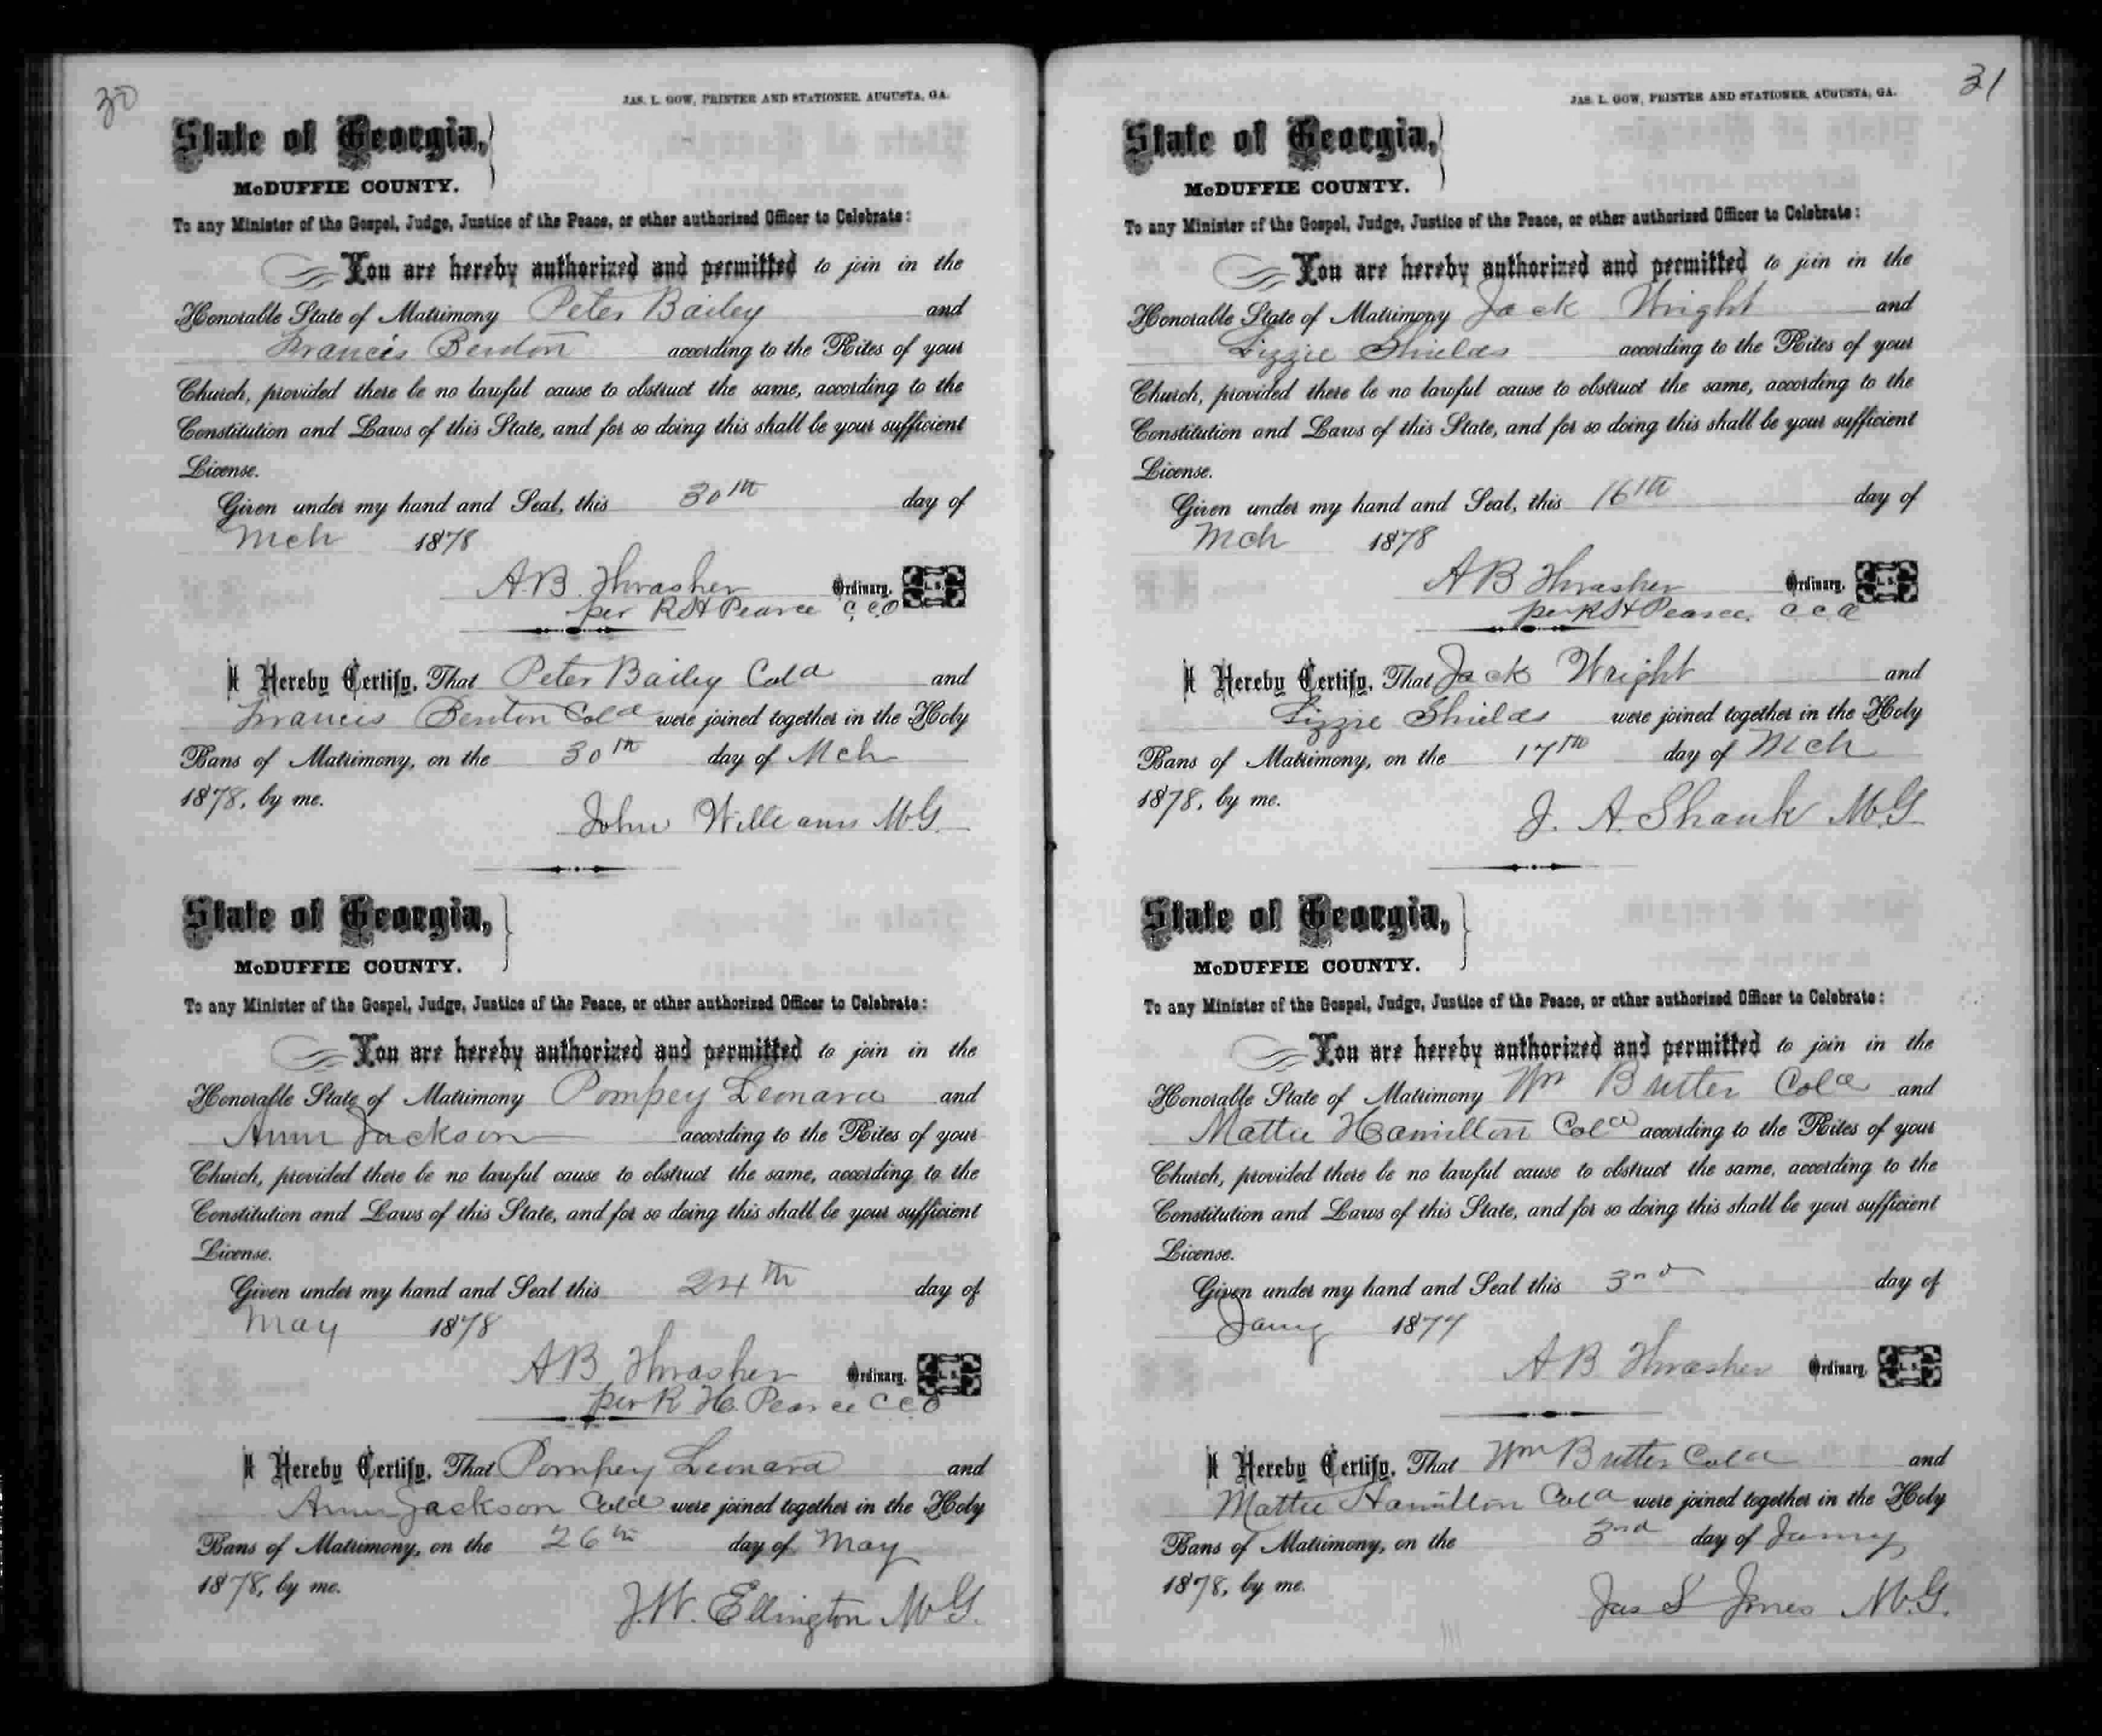 30
JAS. L. GOW, PRINTER AND STATIONER, AUGUSTA, GA.
State of Georgia,
McDUFFIE COUNTY.
To any Minister of the Gospel, Judge, Justice of the Peace, or other authorized Officer to Celebrate:
You are hereby authorized and permitted to join in the
Honorable State of Matrimony Peter Bailey and
Francis Benton according to the Rites of your
Church, provided there be no lawful cause to obstruct the same, according to the
Constitution and Laws of this State, and for so doing this shall be your sufficient
License.
Given under my hand and Seal, this 30th day of
Mch 1878
A.B. Thrasher Ordinary. L. S.
per R H Pearce C.C.O
I Hereby Certify, That Peter Bailey Cold and
Francis Benton Cold were joined together in the Holy
Bans of Matrimony, on the 30th day of Mch
1878, by me.
John Williams M.G.
State of Georgia,
McDUFFIE COUNTY.
To any Minister of the Gospel, Judge, Justice of the Peace, or other authorized Officer to Celebrate:
You are hereby authorized and permitted to join in the
Honorable State of Matrimony Pompey Leonard and
Ann Jackson according to the Rites of your
Church, provided there be no lawful cause to obstruct the same, according to the
Constitution and Laws of this State, and for so doing this shall be your sufficient
License.
Given under my hand and Seal this 24th day of
May 1878
A B Thrasher Ordinary. L. S.
per R. H. Pearce C C O
I Hereby Certify, That Pompey Leonard and
Ann Jackson Cold were joined together in the Holy
Bans of Matrimony, on the 26th day of May
1878, by me.
J.W. Ellington M G.
31
JAS. L. GOW, PRINTER AND STATIONER, AUGUSTA, GA.
State of Georgia,
McDUFFIE COUNTY.
To any Minister of the Gospel, Judge, Justice of the Peace, or other authorized Officer to Celebrate:
You are hereby authorized and permitted to join in the
Honorable State of Matrimony Jack Wright and
Lizzie Shields according to the Rites of your
Church, provided there be no lawful cause to obstruct the same, according to the
Constitution and Laws of this State, and for so doing this shall be your sufficient
License.
Given under my hand and Seal, this 16th day of
Mch 1878
A B Thrasher Ordinary. L. S.
per R H Pearce. C C O
I Hereby Certify, That Jack Wright and
Lizzie Shields were joined together in the Holy
Bans of Matrimony, on the 17th day of Mch
1878, by me.
J. A. Shank M.G
State of Georgia,
McDUFFIE COUNTY.
To any Minister of the Gospel, Judge, Justice of the Peace, or other authorized Officer to Celebrate:
You are hereby authorized and permitted to join in the
Honorable State of Matrimony Wm Britter Cold and
Mattie Hamilton Cold according to the Rites of your
Church, provided there be no lawful cause to obstruct the same, according to the
Constitution and Laws of this State, and for so doing this shall be your sufficient
License.
Given under my hand and Seal this 3rd day of
Jany 1877
A B Thrasher Ordinary. L. S.
I Hereby Certify, That Wm Britter Cold and
Mattie Hamilton Cold were joined together in the Holy
Bans of Matrimony, on the 3rd day of Janny
1878, by me.
Jas S Jones M.G.